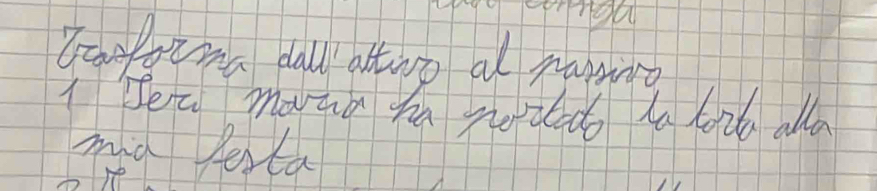 Trasforma dall'attivo al passivo
1 Ieri Mario ha portato la torta alla
mia festa